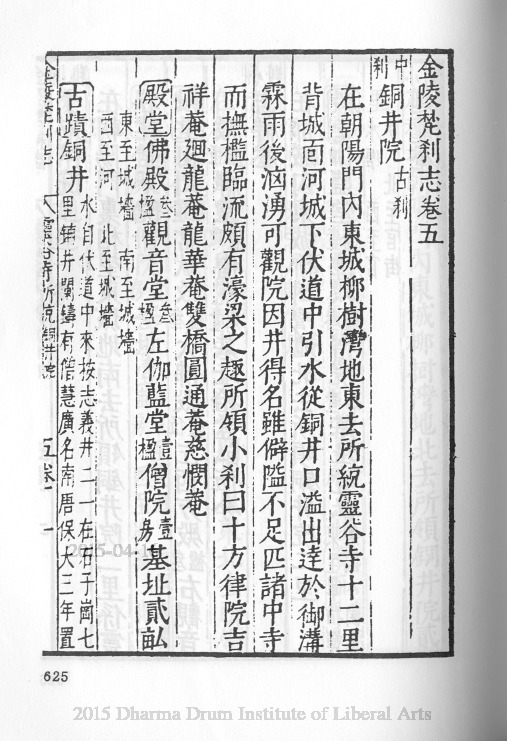 金陵梵刹志卷五
中刹 銅井院 古刹
在朝陽門內東城柳樹灣地東去所統靈谷寺十二里
背城面河城下伏道中引水從銅井口溢出達於御溝
霖雨後洶湧可觀院因井得名雖僻隘不足匹諸中寺
而撫檻臨流頗有濠梁之趣所領小刹曰十方律院吉
祥菴廻龍菴龍華菴雙橋圓通菴慈憫菴
殿堂佛殿叁楹觀音堂叁楹左伽藍堂壹楹僧院壹房基址貳畝
東至城墻 南至城墻
西至河 北至城墻
古蹟銅井水自伏道中來按志義井二一在石子崗七
里鋪井闌鑄有僧慧廣名南唐保大三年置
金陵梵刹志 靈谷寺所統銅井院 五卷 一
625
2015 Dharma Drum Institute of Liberal Arts